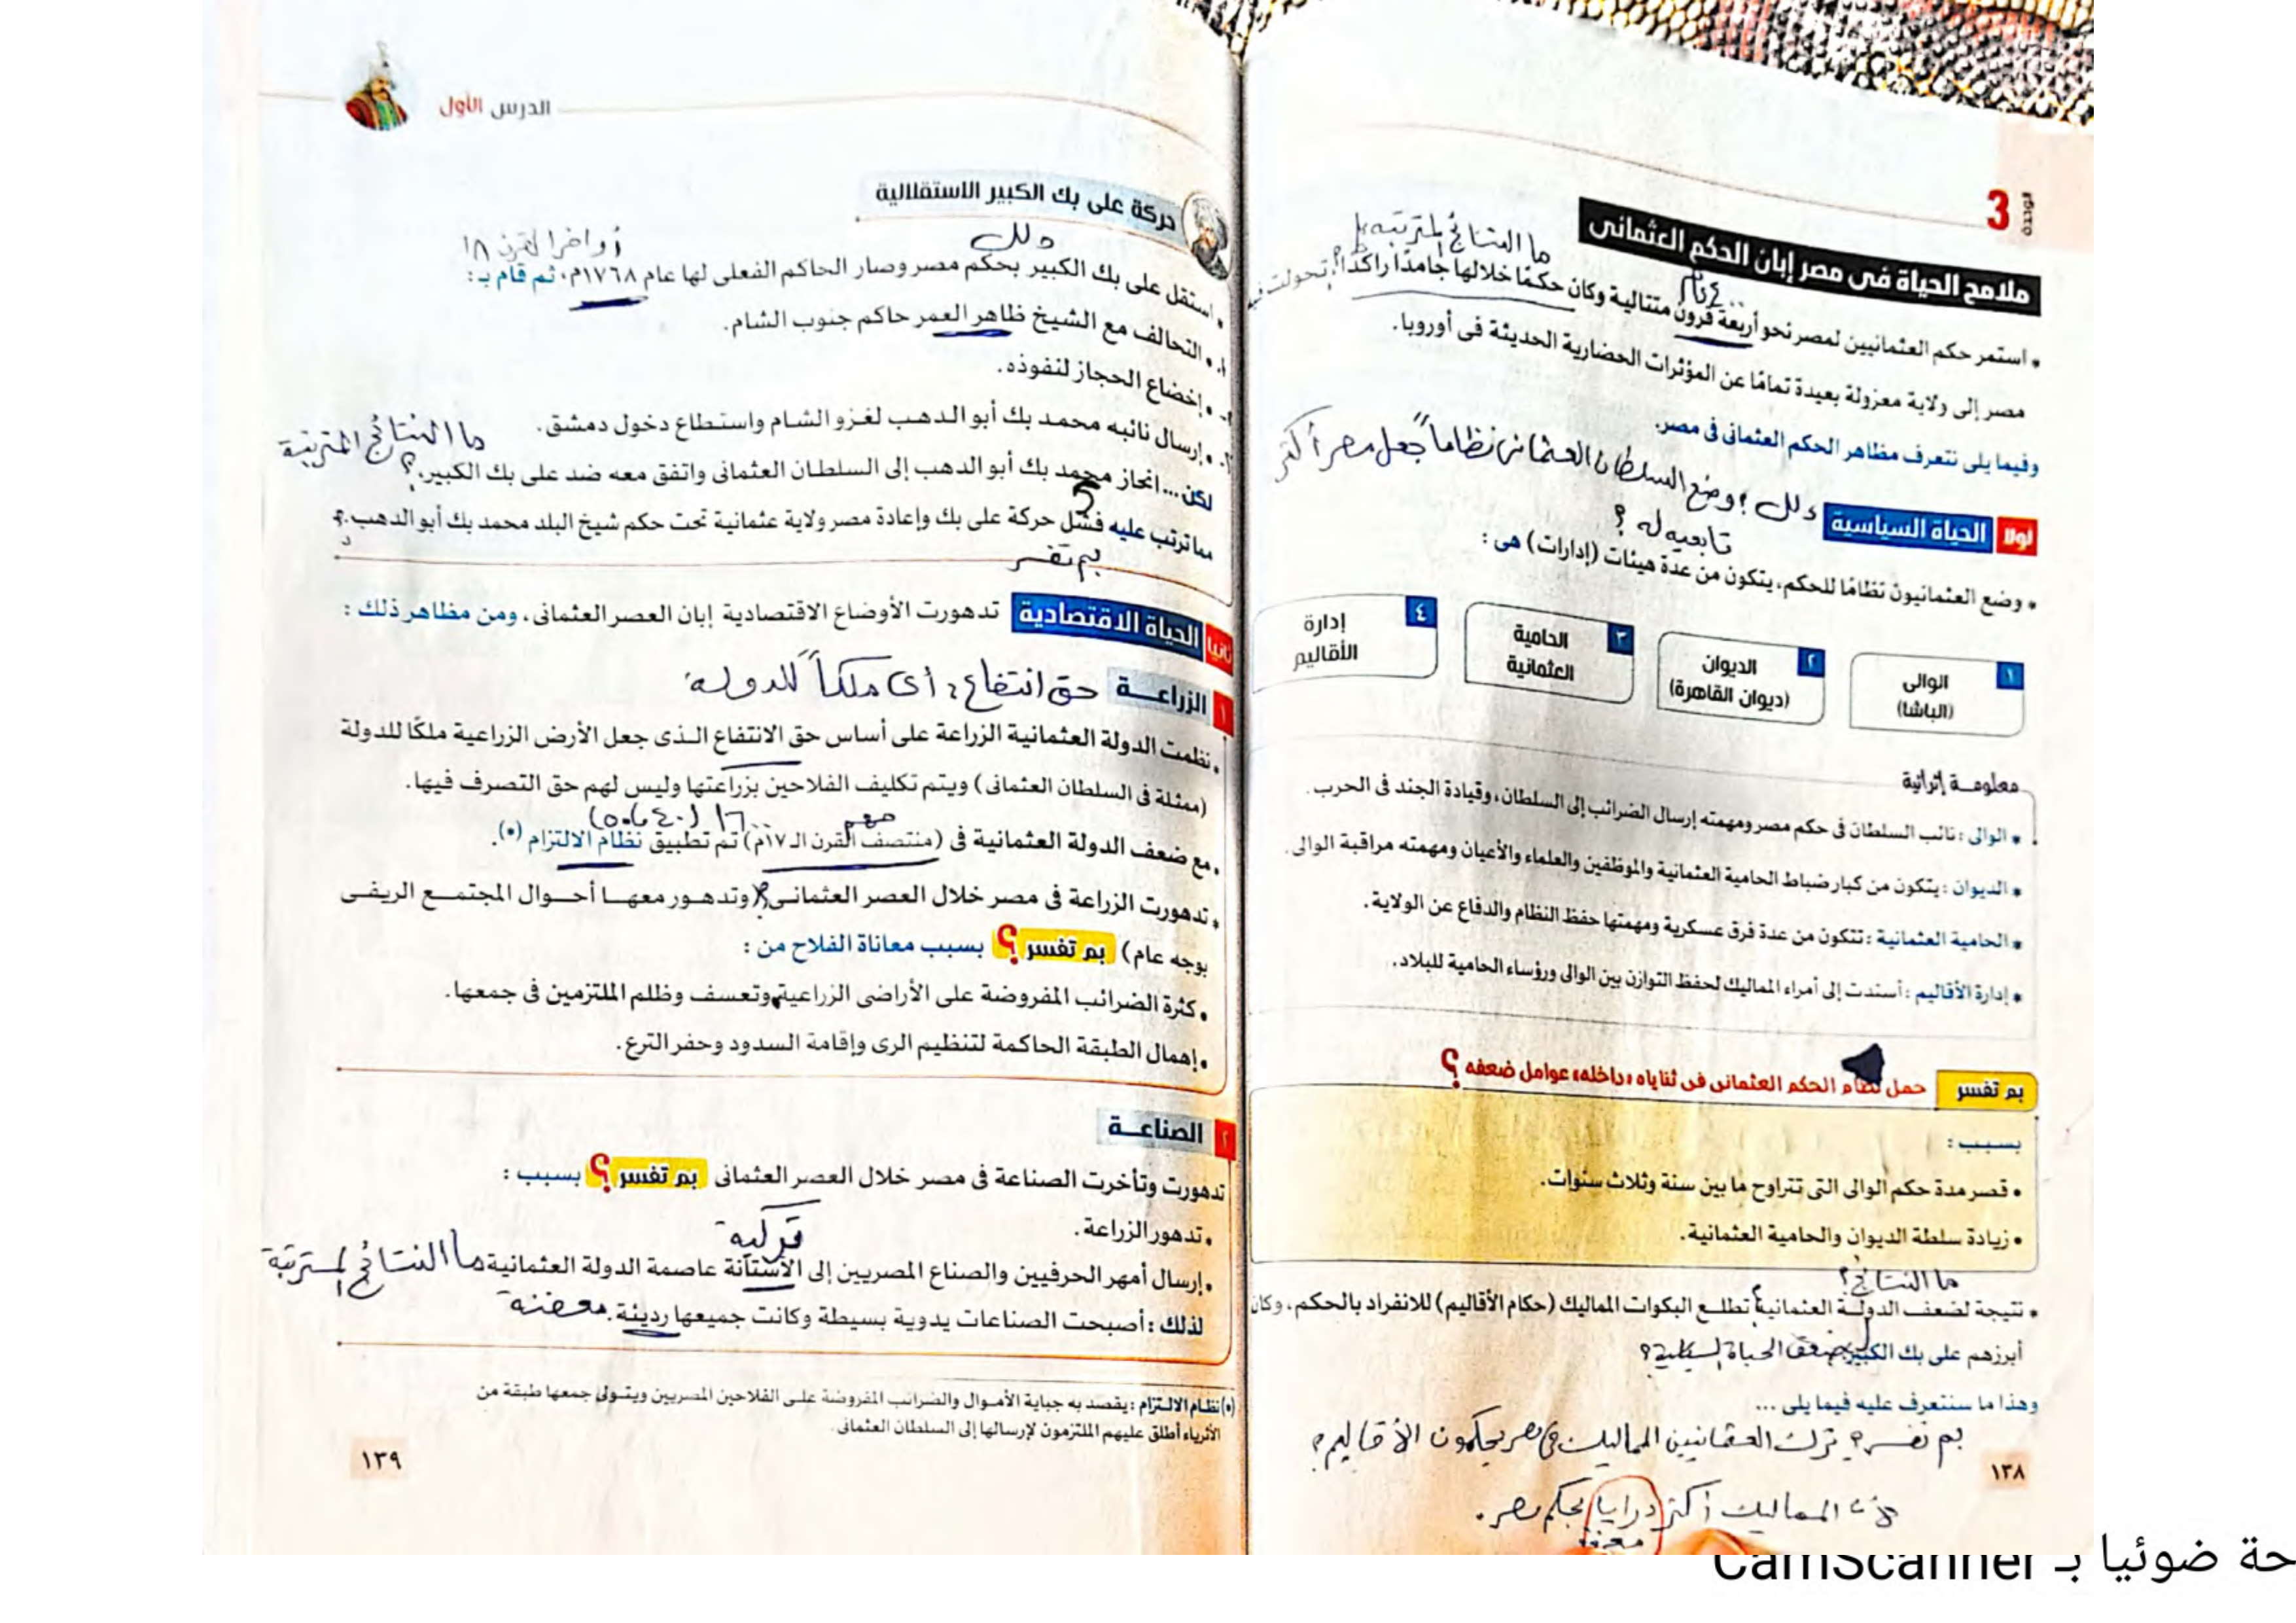 الوحدة
3
ملامح الحياة فى مصر إبان الحكم العثمانى
ما النتائج المترتبة
• استمر حكم العثمانيين لمصر نحو أربعة قرون متتالية وكان حكمًا خلالها جامدًا راكدًا، تحولت فيه
مصر إلى ولاية معزولة بعيدة تمامًا عن المؤثرات الحضارية الحديثة فى أوروبا.
وفيما يلى نتعرف مظاهر الحكم العثمانى فى مصر.
دلل ؟ وضع السلطان العثمانى نظاماً جعل مصر أكثر
تابعيه له ؟
أولا الحياة السياسية
• وضع العثمانيون نظامًا للحكم، يتكون من عدة هيئات (إدارات) هى :
١ الوالى (الباشا)
٢ الديوان (ديوان القاهرة)
٣ الحامية العثمانية
٤ إدارة الأقاليم
معلومـة إثرائية
• الوالى : نائب السلطان فى حكم مصر ومهمته إرسال الضرائب إلى السلطان، وقيادة الجند فى الحرب.
• الديوان : يتكون من كبار ضباط الحامية العثمانية والموظفين والعلماء والأعيان ومهمته مراقبة الوالى.
• الحامية العثمانية : تتكون من عدة فرق عسكرية ومهمتها حفظ النظام والدفاع عن الولاية.
• إدارة الأقاليم : أسندت إلى أمراء المماليك لحفظ التوازن بين الوالى ورؤساء الحامية للبلاد.
بم تفسر حمل نظام الحكم العثمانى فى ثناياه «داخله» عوامل ضعفه ؟
بسبب :
• قصر مدة حكم الوالى التى تتراوح ما بين سنة وثلاث سنوات.
• زيادة سلطة الديوان والحامية العثمانية.
ما النتائج ؟
• نتيجة لضعف الدولة العثمانية تطلع البكوات المماليك (حكام الأقاليم) للانفراد بالحكم، وكان
أبرزهم على بك الكبير
لضعف الحياة السياسية ؟
وهذا ما سنتعرف عليه فيما يلى ...
بم تفسر ؟ ترك العثمانيين المماليك فى مصر يحكمون الأقاليم ؟
لأن المماليك أكثر درايا بحكم مصر.
معرفة
١٣٨
الدرس الأول
حركة على بك الكبير الاستقلالية
دلل
أواخر القرن ١٨
• استقل على بك الكبير بحكم مصر وصار الحاكم الفعلى لها عام ١٧٦٨م، ثم قام بـ :
١- • التحالف مع الشيخ ظاهر العمر حاكم جنوب الشام.
٢- • إخضاع الحجاز لنفوذه.
٣- • إرسال نائبه محمد بك أبو الدهب لغزو الشام واستطاع دخول دمشق.
ما النتائج المترتبة
لكن ... انحاز محمد بك أبو الدهب إلى السلطان العثمانى واتفق معه ضد على بك الكبير. ؟
مما ترتب عليه فشل حركة على بك وإعادة مصر ولاية عثمانية تحت حكم شيخ البلد محمد بك أبو الدهب.
بم تفسر
ثانيا الحياة الاقتصادية تدهورت الأوضاع الاقتصادية إبان العصر العثمانى، ومن مظاهر ذلك :
١ الزراعـة حق انتفاع : أى ملكاً للدولة
• نظمت الدولة العثمانية الزراعة على أساس حق الانتفاع الذى جعل الأرض الزراعية ملكًا للدولة
(ممثلة فى السلطان العثمانى) ويتم تكليف الفلاحين بزراعتها وليس لهم حق التصرف فيها.
مهم
• مع ضعف الدولة العثمانية فى (منتصف القرن الـ ١٧م) تم تطبيق نظام الالتزام (*).
• تدهورت الزراعة فى مصر خلال العصر العثمانى (وتدهور معها أحوال المجتمع الريفى
بوجه عام) بم تفسر ؟ بسبب معاناة الفلاح من :
• كثرة الضرائب المفروضة على الأراضى الزراعية وتعسف وظلم الملتزمين فى جمعها.
• إهمال الطبقة الحاكمة لتنظيم الرى وإقامة السدود وحفر الترع.
٢ الصناعـة
تدهورت وتأخرت الصناعة فى مصر خلال العصر العثمانى بم تفسر ؟ بسبب :
• تدهور الزراعة.
تركية
• إرسال أمهر الحرفيين والصناع المصريين إلى الأستانة عاصمة الدولة العثمانية ما النتائج المترتبة
لذلك : أصبحت الصناعات يدوية بسيطة وكانت جميعها رديئة. معفنة
(*) نظام الالتزام : يقصد به جباية الأموال والضرائب المفروضة على الفلاحين المصريين ويتولى جمعها طبقة من
الأثرياء أطلق عليهم الملتزمون لإرسالها إلى السلطان العثمانى.
١٣٩
حة ضوئيا بـ CamScanner